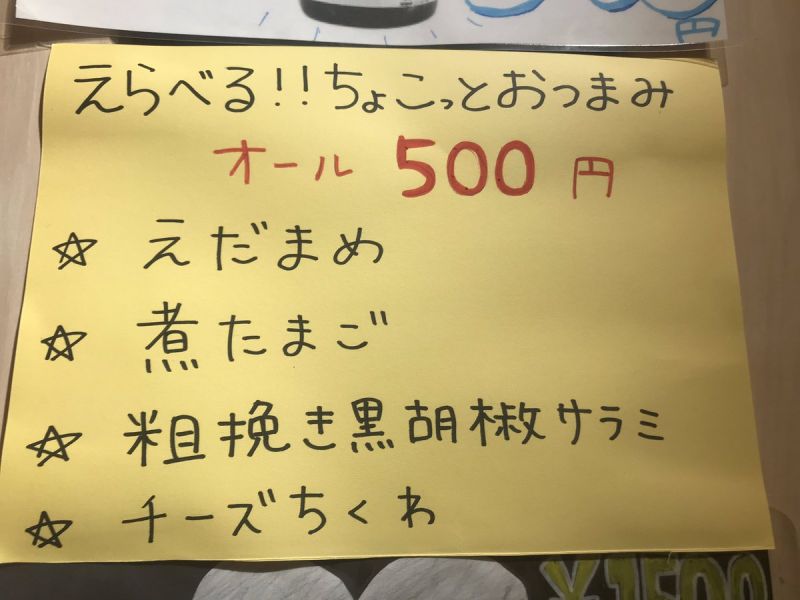 円
えらべる!!ちょこっとおつまみ
オール 500 円
☆ えだまめ
☆ 煮たまご
☆ 粗挽き黒胡椒サラミ
☆ チーズちくわ
¥1500